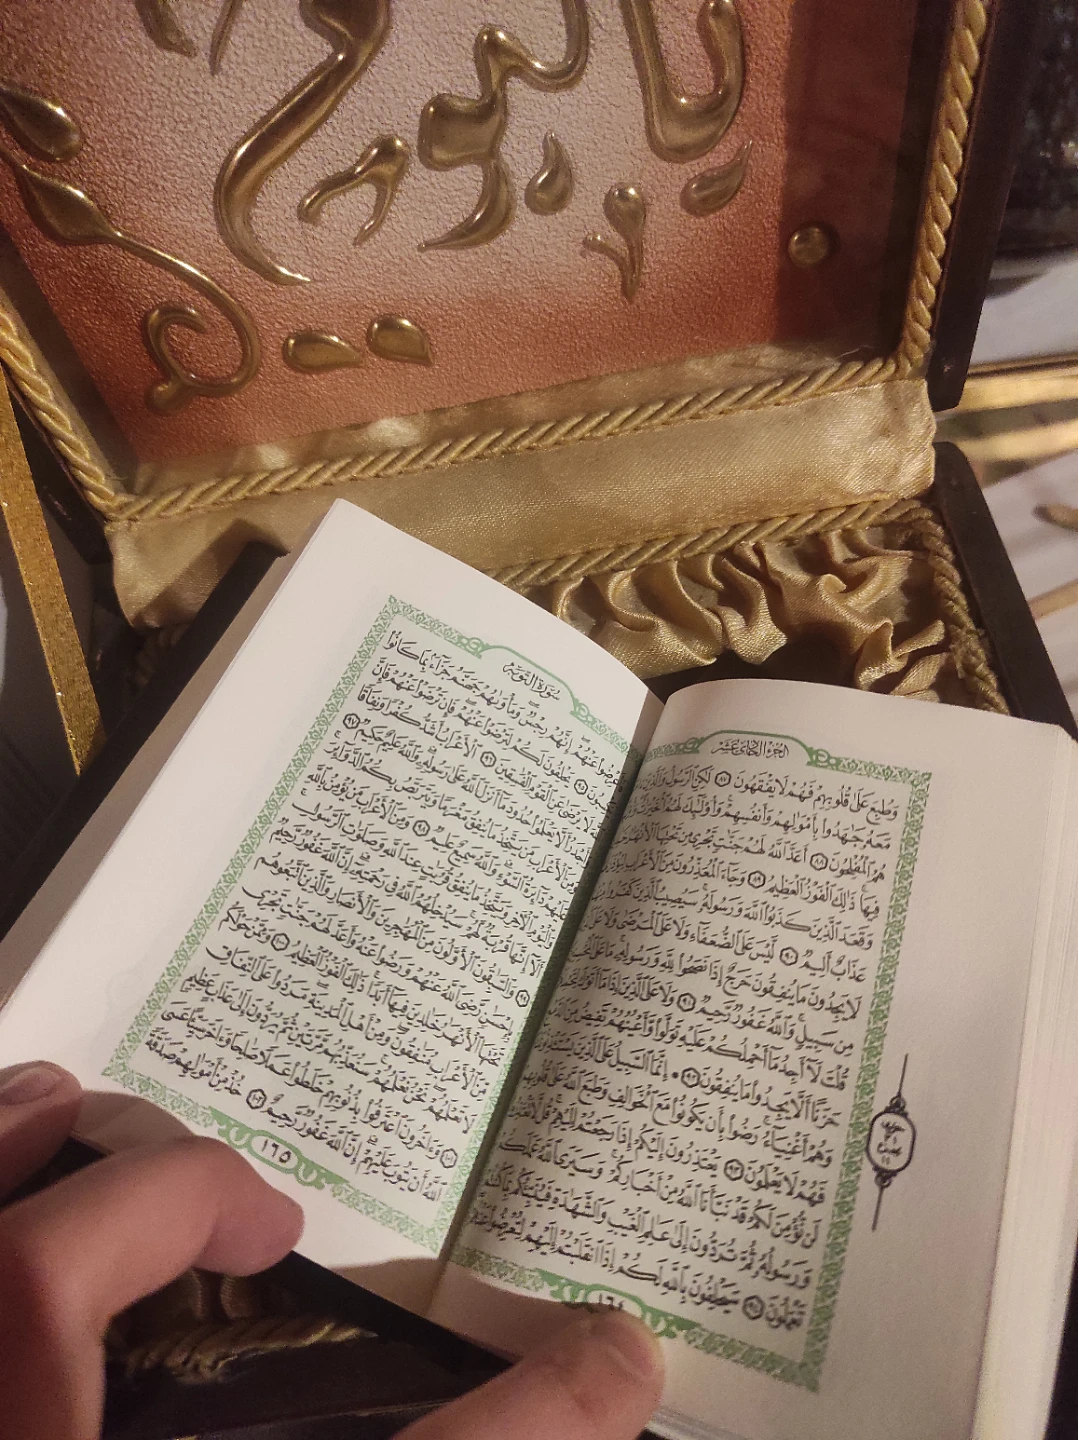 الجزء الحادي عشر
وَطُبِعَ عَلَىٰ قُلُوبِهِمْ فَهُمْ لَا يَفْقَهُونَ ٨٧ لَٰكِنِ ٱلرَّسُولُ وَٱلَّذِينَ
مَعَهُۥ جَٰهَدُوا۟ بِأَمْوَٰلِهِمْ وَأَنفُسِهِمْ وَأُو۟لَٰٓئِكَ لَهُمُ ٱلْخَيْرَٰتُ
هُمُ ٱلْمُفْلِحُونَ ٨٨ أَعَدَّ ٱللَّهُ لَهُمْ جَنَّٰتٍ تَجْرِى مِن تَحْتِهَا ٱلْأَنْهَٰرُ
فِيهَا ذَٰلِكَ ٱلْفَوْزُ ٱلْعَظِيمُ ٨٩ وَجَآءَ ٱلْمُعَذِّرُونَ مِنَ ٱلْأَعْرَابِ لِيُؤْذَنَ
وَقَعَدَ ٱلَّذِينَ كَذَبُوا۟ ٱللَّهَ وَرَسُولَهُۥ سَيُصِيبُ ٱلَّذِينَ كَفَرُوا۟
عَذَابٌ أَلِيمٌ ٩٠ لَّيْسَ عَلَى ٱلضُّعَفَآءِ وَلَا عَلَى ٱلْمَرْضَىٰ وَلَا عَلَى
لَا يَجِدُونَ مَا يُنفِقُونَ حَرَجٌ إِذَا نَصَحُوا۟ لِلَّهِ وَرَسُولِهِۦ مَا عَلَى
مِن سَبِيلٍ وَٱللَّهُ غَفُورٌ رَّحِيمٌ ٩١ وَلَا عَلَى ٱلَّذِينَ إِذَا مَآ أَتَوْكَ
قُلْتَ لَآ أَجِدُ مَآ أَحْمِلُكُمْ عَلَيْهِ تَوَلَّوا۟ وَّأَعْيُنُهُمْ تَفِيضُ مِنَ
حَزَنًا أَلَّا يَجِدُوا۟ مَا يُنفِقُونَ ٩٢ إِنَّمَا ٱلسَّبِيلُ عَلَى ٱلَّذِينَ يَسْتَـْٔذِنُونَكَ
وَهُمْ أَغْنِيَآءُ رَضُوا۟ بِأَن يَكُونُوا۟ مَعَ ٱلْخَوَالِفِ وَطَبَعَ ٱللَّهُ عَلَىٰ قُلُوبِهِمْ
فَهُمْ لَا يَعْلَمُونَ ٩٣ يَعْتَذِرُونَ إِلَيْكُمْ إِذَا رَجَعْتُمْ إِلَيْهِمْ قُل لَّا تَعْتَذِرُوا۟
لَن نُّؤْمِنَ لَكُمْ قَدْ نَبَّأَنَا ٱللَّهُ مِنْ أَخْبَارِكُمْ وَسَيَرَى ٱللَّهُ عَمَلَكُمْ
وَرَسُولُهُۥ ثُمَّ تُرَدُّونَ إِلَىٰ عَٰلِمِ ٱلْغَيْبِ وَٱلشَّهَٰدَةِ فَيُنَبِّئُكُم بِمَا كُنتُمْ
تَعْمَلُونَ ٩٤ سَيَحْلِفُونَ بِٱللَّهِ لَكُمْ إِذَا ٱنقَلَبْتُمْ إِلَيْهِمْ لِتُعْرِضُوا۟ عَنْهُمْ
١٦٤
سورة التوبة
فَأَعْرِضُوا۟ عَنْهُمْ إِنَّهُمْ رِجْسٌ وَمَأْوَىٰهُمْ جَهَنَّمُ جَزَآءًۢ بِمَا كَانُوا۟
يَكْسِبُونَ ٩٥ يَحْلِفُونَ لَكُمْ لِتَرْضَوْا۟ عَنْهُمْ فَإِن تَرْضَوْا۟ عَنْهُمْ فَإِنَّ
ٱللَّهَ لَا يَرْضَىٰ عَنِ ٱلْقَوْمِ ٱلْفَٰسِقِينَ ٩٦ ٱلْأَعْرَابُ أَشَدُّ كُفْرًا وَنِفَاقًا
وَأَجْدَرُ أَلَّا يَعْلَمُوا۟ حُدُودَ مَآ أَنزَلَ ٱللَّهُ عَلَىٰ رَسُولِهِۦ وَٱللَّهُ عَلِيمٌ حَكِيمٌ ٩٧
وَمِنَ ٱلْأَعْرَابِ مَن يَتَّخِذُ مَا يُنفِقُ مَغْرَمًا وَيَتَرَبَّصُ بِكُمُ ٱلدَّوَآئِرَ
عَلَيْهِمْ دَآئِرَةُ ٱلسَّوْءِ وَٱللَّهُ سَمِيعٌ عَلِيمٌ ٩٨ وَمِنَ ٱلْأَعْرَابِ مَن يُؤْمِنُ بِٱللَّهِ
وَٱلْيَوْمِ ٱلْءَاخِرِ وَيَتَّخِذُ مَا يُنفِقُ قُرُبَٰتٍ عِندَ ٱللَّهِ وَصَلَوَٰتِ ٱلرَّسُولِ
أَلَآ إِنَّهَا قُرْبَةٌ لَّهُمْ سَيُدْخِلُهُمُ ٱللَّهُ فِى رَحْمَتِهِۦٓ إِنَّ ٱللَّهَ غَفُورٌ رَّحِيمٌ
٩٩ وَٱلسَّٰبِقُونَ ٱلْأَوَّلُونَ مِنَ ٱلْمُهَٰجِرِينَ وَٱلْأَنصَارِ وَٱلَّذِينَ ٱتَّبَعُوهُم
بِإِحْسَٰنٍ رَّضِىَ ٱللَّهُ عَنْهُمْ وَرَضُوا۟ عَنْهُ وَأَعَدَّ لَهُمْ جَنَّٰتٍ تَجْرِى
تَحْتَهَا ٱلْأَنْهَٰرُ خَٰلِدِينَ فِيهَآ أَبَدًا ذَٰلِكَ ٱلْفَوْزُ ٱلْعَظِيمُ ١٠٠ وَمِمَّنْ حَوْلَكُم
مِّنَ ٱلْأَعْرَابِ مُنَٰفِقُونَ وَمِنْ أَهْلِ ٱلْمَدِينَةِ مَرَدُوا۟ عَلَى ٱلنِّفَاقِ
لَا تَعْلَمُهُمْ نَحْنُ نَعْلَمُهُمْ سَنُعَذِّبُهُم مَّرَّتَيْنِ ثُمَّ يُرَدُّونَ إِلَىٰ عَذَابٍ عَظِيمٍ
١٠١ وَءَاخَرُونَ ٱعْتَرَفُوا۟ بِذُنُوبِهِمْ خَلَطُوا۟ عَمَلًا صَٰلِحًا وَءَاخَرَ سَيِّئًا عَسَى
ٱللَّهُ أَن يَتُوبَ عَلَيْهِمْ إِنَّ ٱللَّهَ غَفُورٌ رَّحِيمٌ ١٠٢ خُذْ مِنْ أَمْوَٰلِهِمْ صَدَقَةً
١٦٥